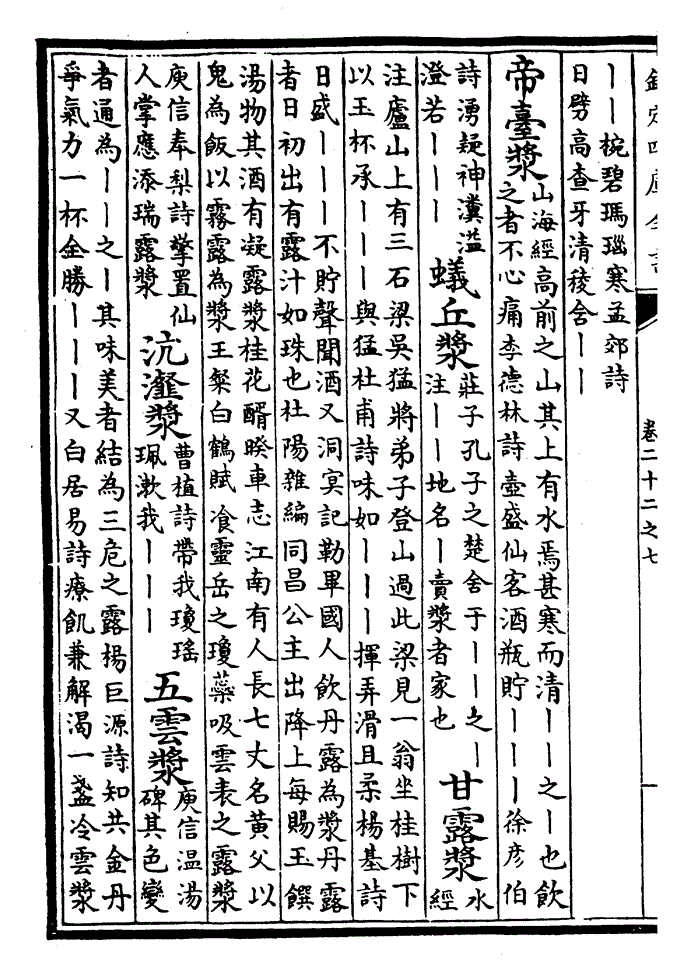 欽定四庫全書
卷二十二之七
丨丨椀碧瑪瑙寒孟郊詩
日劈高查牙清稜含丨丨
帝臺漿
山海經高前之山其上有水焉甚寒而清丨丨之丨也飲
之者不心痛李德林詩壺盛仙客酒瓶貯丨丨丨徐彥伯
詩湧疑神瀵溢
澄若丨丨丨
蟻丘漿
莊子孔子之楚舍于丨丨之丨
注丨丨地名丨賣漿者家也
甘露漿
水
經
注廬山上有三石梁吳猛將弟子登山過此梁見一翁坐桂樹下
以玉杯承丨丨丨與猛杜甫詩味如丨丨丨揮弄滑且柔楊基詩
日盛丨丨丨不貯聲聞酒又洞冥記勒畢國人飲丹露為漿丹露
者日初出有露汁如珠也杜陽雜編同昌公主出降上每賜玉饌
湯物其酒有凝露漿桂花醑暌車志江南有人長七丈名黃父以
鬼為飯以霧露為漿王粲白鶴賦飡靈岳之瓊蘂吸雲表之露漿
庾信奉梨詩擎置仙
人掌應添瑞露漿
沆瀣漿
曹植詩帶我瓊瑤
珮漱我丨丨丨
五雲漿
庾信温湯
碑其色變
者通為丨丨之丨其味美者結為三危之露楊巨源詩知共金丹
爭氣力一杯全勝丨丨丨又白居易詩療飢兼解渴一盞冷雲漿